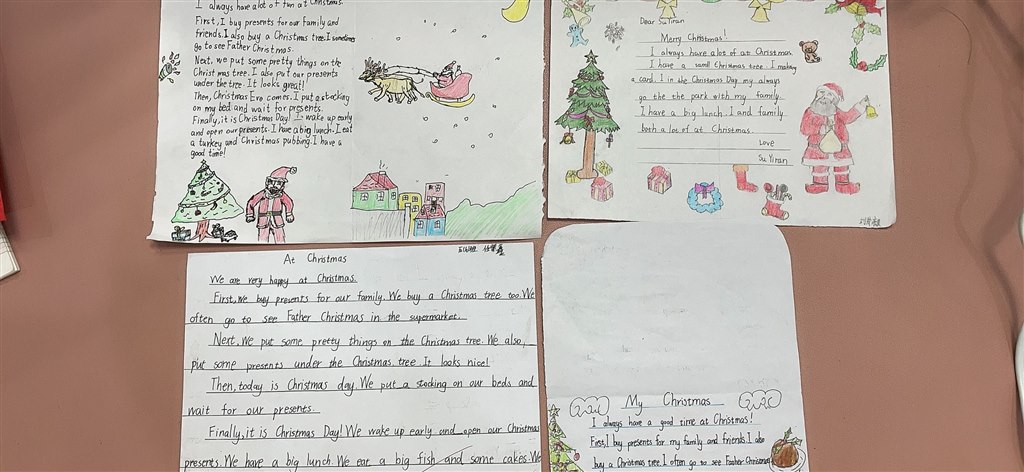 I always have alot of fun at Christmas.
First, I bug presents for our family and
friends. I also buy a Christmas tree. I sometimes
go to see Father Christmas.
Next, we put some pretty things on the
Christmas tree. I also put our presents
under the tree. It looks great!
Then, Christmas Eve comes. I put a stocking
on my bed and wait for presents.
Finally, it is Christmas Day! I wake up early
and open our presents. I have a big lunch. I eat
a turkey and Christmas pubbing. I have a
good time!
Dear Su Yiran
Merry Christmas!
I always have a lot of at Christmas.
I have a samll Christmas tree. I making
a card. I in the Christmas Day my always
go the the park with my family.
I have a big lunch. I and family
both a lot of at Christmas.
Love
Su Yiran
At Christmas
We are very happy at Christmas.
First, we buy presents for our family. We buy a Christmas tree too. We
often go to see Father Christmas in the supermarket.
Next, We put some pretty things on the Christmas tree. We also
put some presents under the Christmas tree. It looks nice!
Then, today is Christmas day. We put a stocking on our beds and
wait for our presents.
Finally, it is Christmas Day! We wake up early and open our Christmas
presents. We have a big lunch. We eat a big fish and some cakes. We
My Christmas
I always have a good time at Christmas!
First, I buy presents for my family and friends. I also
buy a Christmas tree. I often go to see Father Christmas